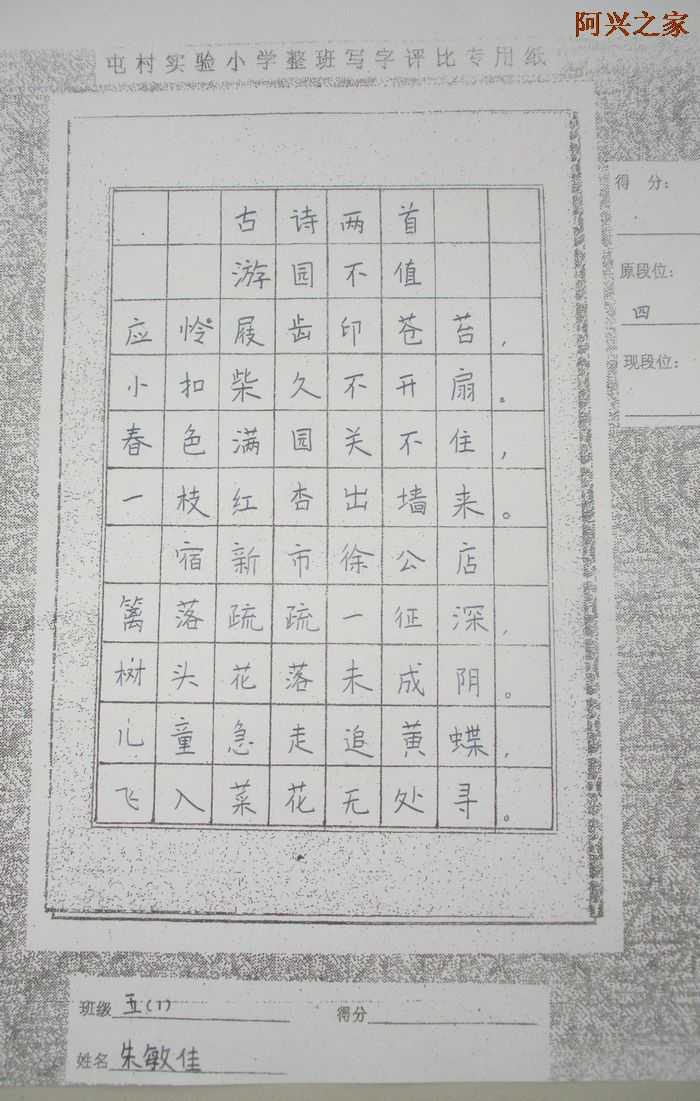 阿兴之家
屯村实验小学整班写字评比专用纸
得 分：
原段位：
四
现段位：
古诗两首
游园不值
应怜屐齿印苍苔，
小扣柴久不开扇。
春色满园关不住，
一枝红杏出墙来。
宿新市徐公店
篱落疏疏一征深，
树头花落未成阴。
儿童急走追黄蝶，
飞入菜花无处寻。
班级 五（1） 得分
姓名 朱敏佳